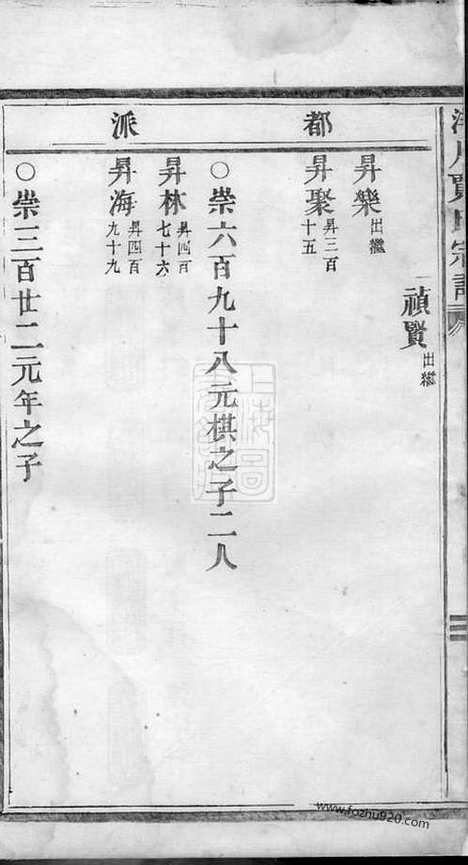 賈氏宗譜
都
派
禎賢 出繼
昇樂 出繼
昇聚 昇三百十五
○崇六百九十八元棋之子二人
昇林 昇四百七十六
昇海 昇四百九十九
○崇三百廿二元年之子
www.fozhu920.com